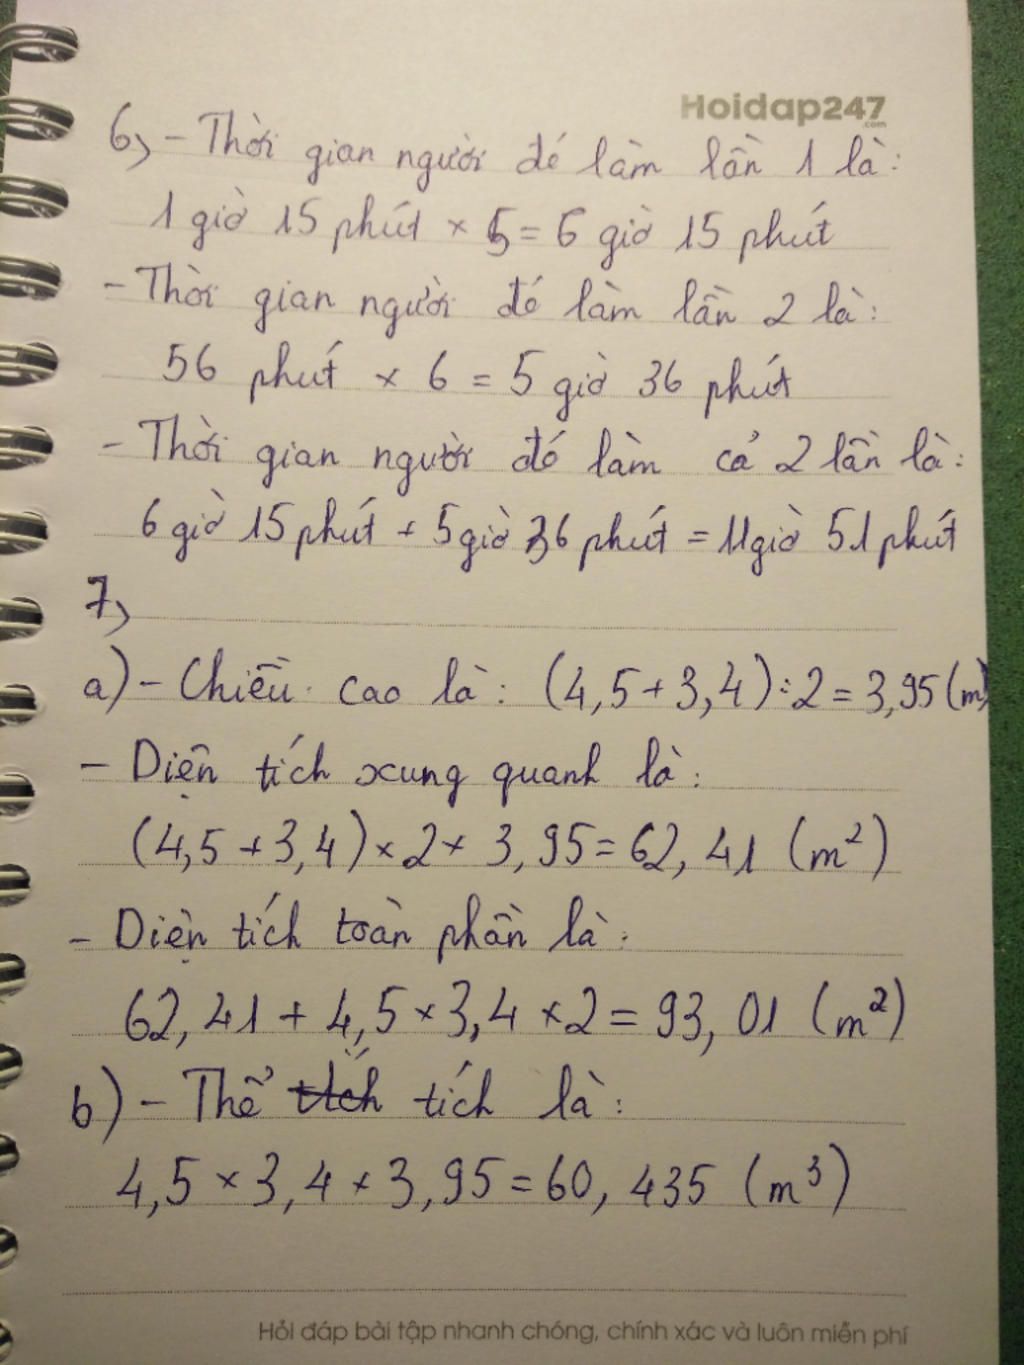 Hoidap247
.com
6, - Thời gian người đó làm lần 1 là:
1 giờ 15 phút × 5 = 6 giờ 15 phút
- Thời gian người đó làm lần 2 là:
56 phút × 6 = 5 giờ 36 phút
- Thời gian người đó làm cả 2 lần là:
6 giờ 15 phút + 5 giờ 36 phút = 11 giờ 51 phút
7,
a) - Chiều cao là: (4,5 + 3,4) : 2 = 3,95 (m)
- Diện tích xung quanh là:
(4,5 + 3,4) × 2 × 3,95 = 62,41 (m²)
- Diện tích toàn phần là:
62,41 + 4,5 × 3,4 × 2 = 93,01 (m²)
b) - Thể tích là:
4,5 × 3,4 × 3,95 = 60,435 (m³)
Hỏi đáp bài tập nhanh chóng, chính xác và luôn miễn phí